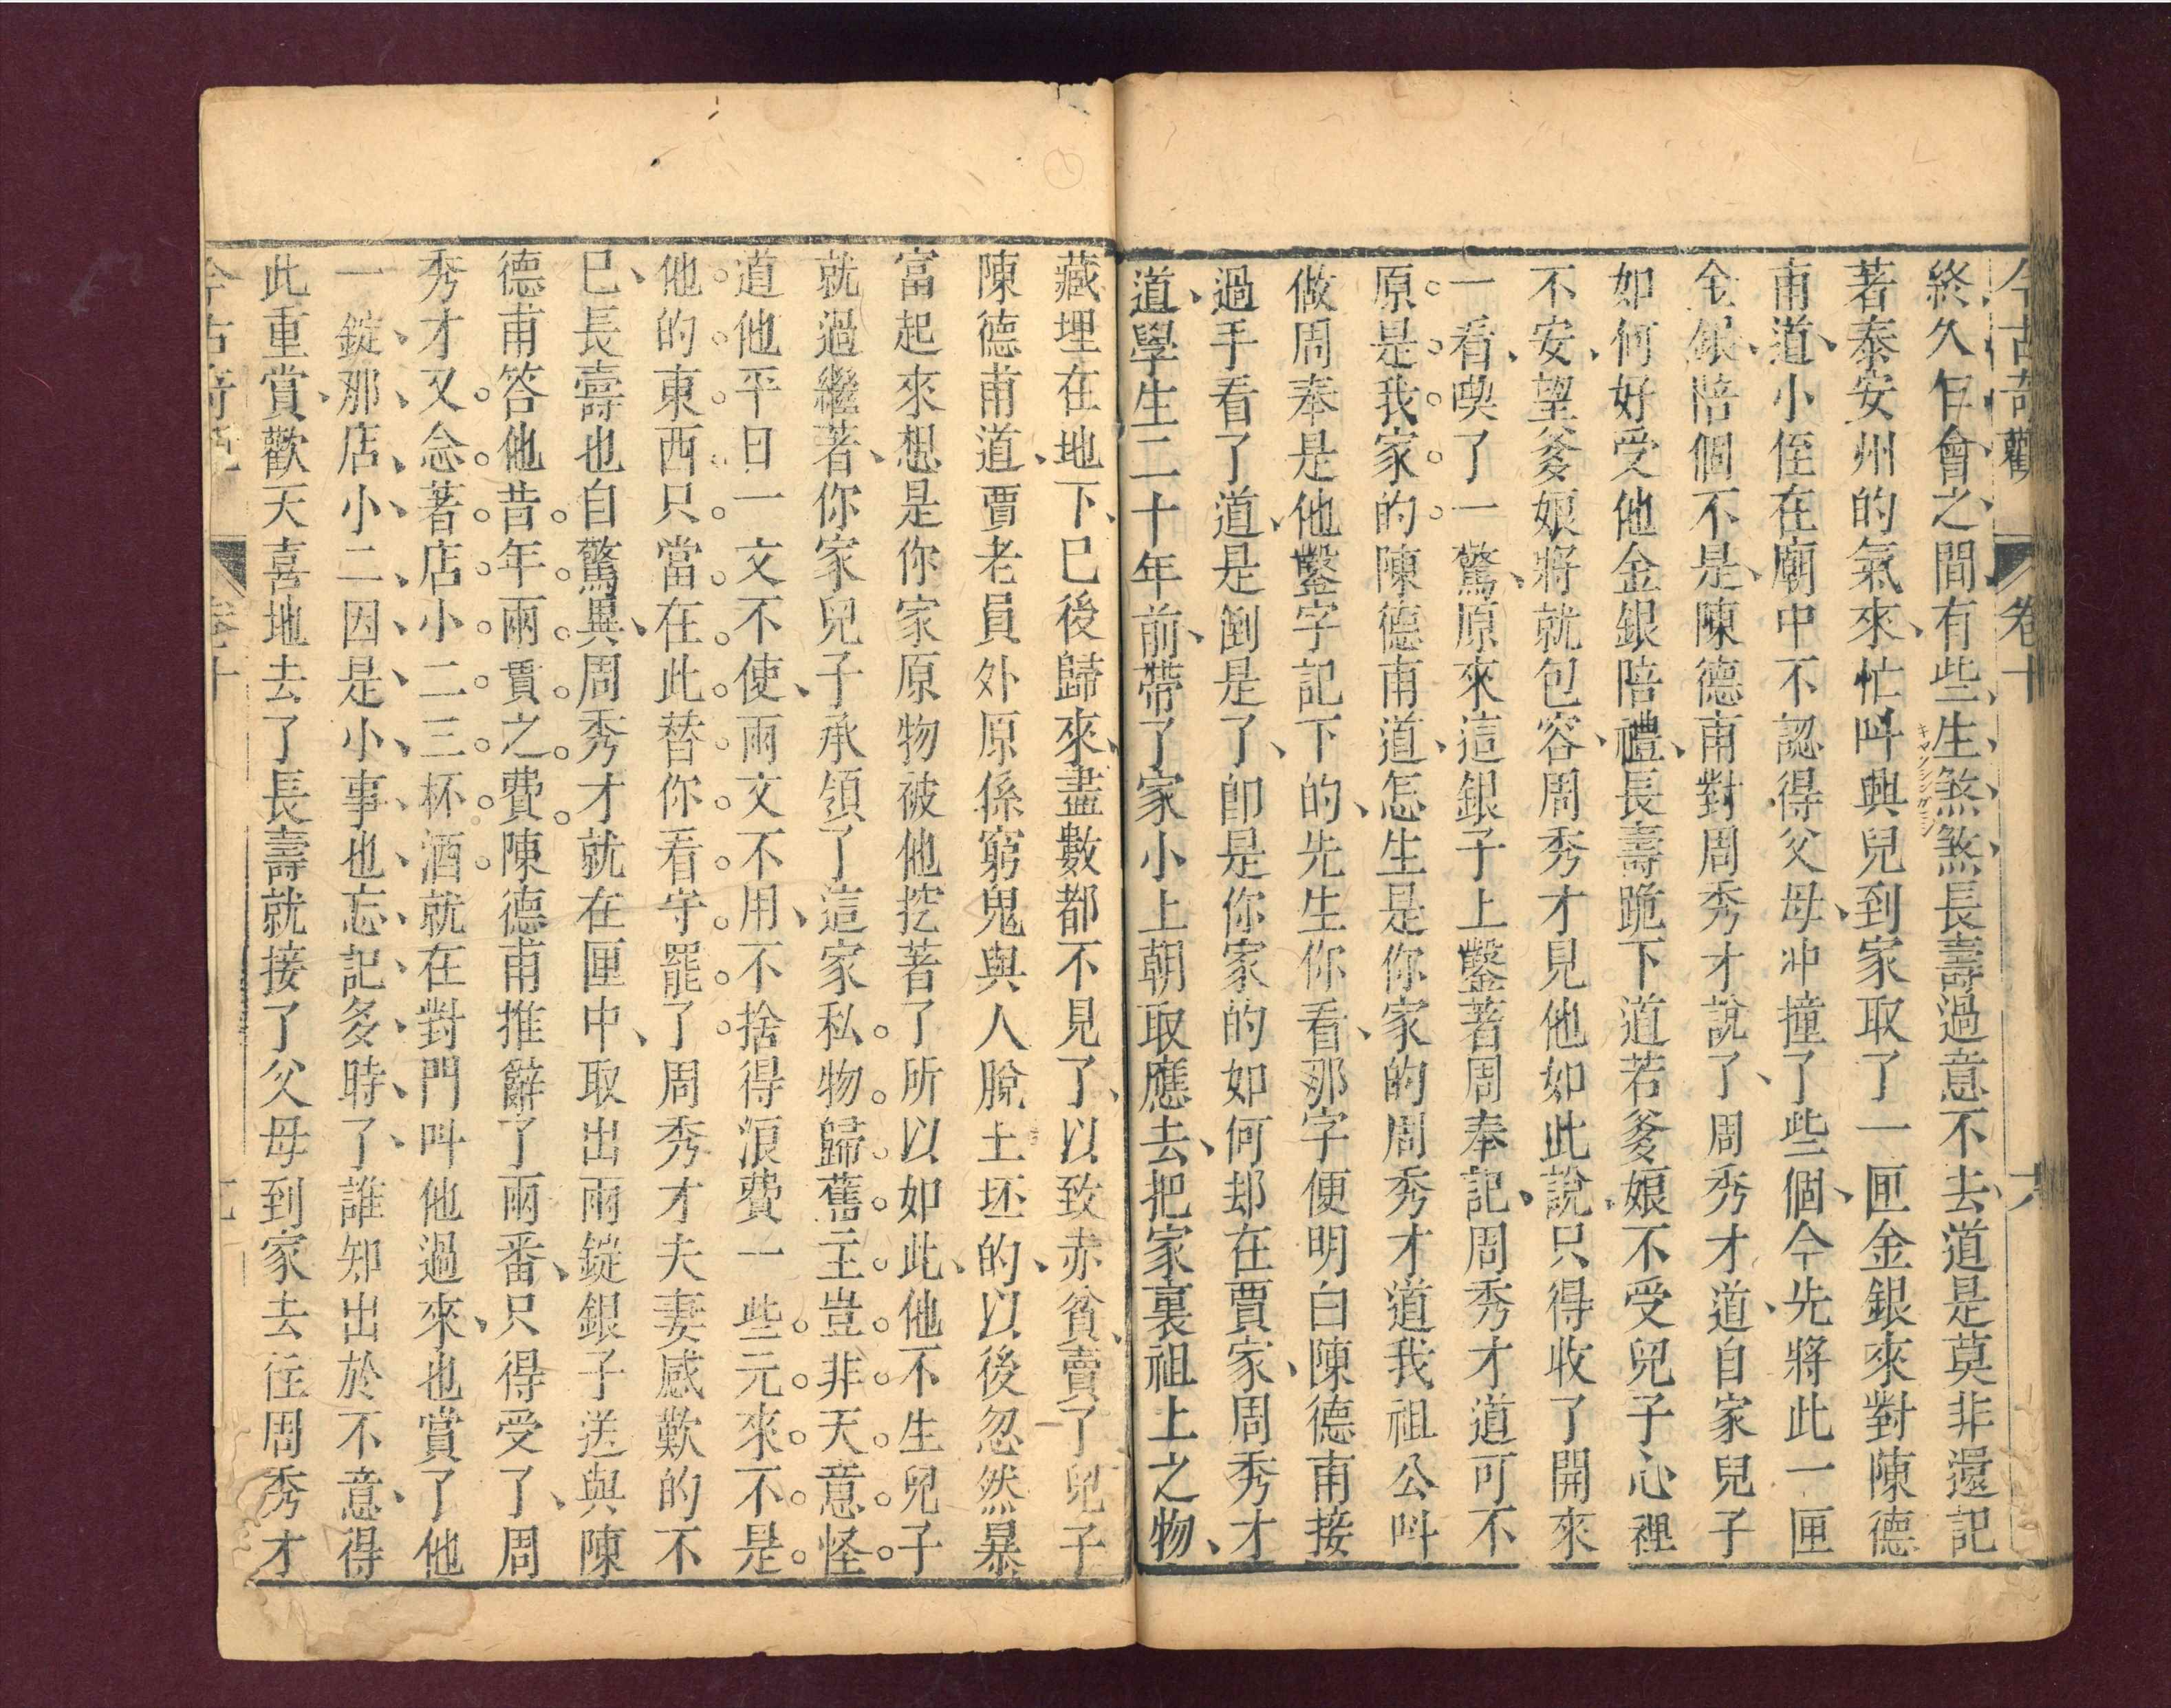 今古奇觀 卷十 六
終久乍會之間有些生煞煞長壽過意不去道是莫非還記
キマツシンガニシ
著泰安州的氣來忙呌興兒到家取了一匣金銀來對陳德
甫道小侄在廟中不認得父母冲撞了些個今先將此一匣
金銀陪個不是陳德甫對周秀才說了周秀才道自家兒子
如何好受他金銀陪禮長壽跪下道若爹娘不受兒子心裡
不安望爹娘將就包容周秀才見他如此說只得收了開來
一看喫了一驚原來這銀子上鑿著周奉記周秀才道可不
原是我家的陳德甫道怎生是你家的周秀才道我祖公呌
做周奉是他鑿字記下的先生你看那字便明白陳德甫接
過手看了道是倒是了卽是你家的如何却在賈家周秀才
道學生二十年前帶了家小上朝取應去把家裏祖上之物
藏埋在地下已後歸來盡數都不見了以致赤貧賣了兒子
陳德甫道賈老員外原係窮鬼與人脫土坯的以後忽然暴
富起來想是你家原物被他挖著了所以如此他不生兒子
就過繼著你家兒子承領了這家私物歸舊主豈非天意怪
道他平日一文不使兩文不用不捨得浪費一些元來不是
他的東西只當在此替你看守罷了周秀才夫妻感歎的不
已長壽也自驚異周秀才就在匣中取出兩錠銀子送與陳
德甫答他昔年兩貫之費陳德甫推辭了兩番只得受了周
秀才又念著店小二三杯酒就在對門呌他過來也賞了他
一錠那店小二因是小事也忘記多時了誰知出於不意得
此重賞歡天喜地去了長壽就接了父母到家去住周秀才